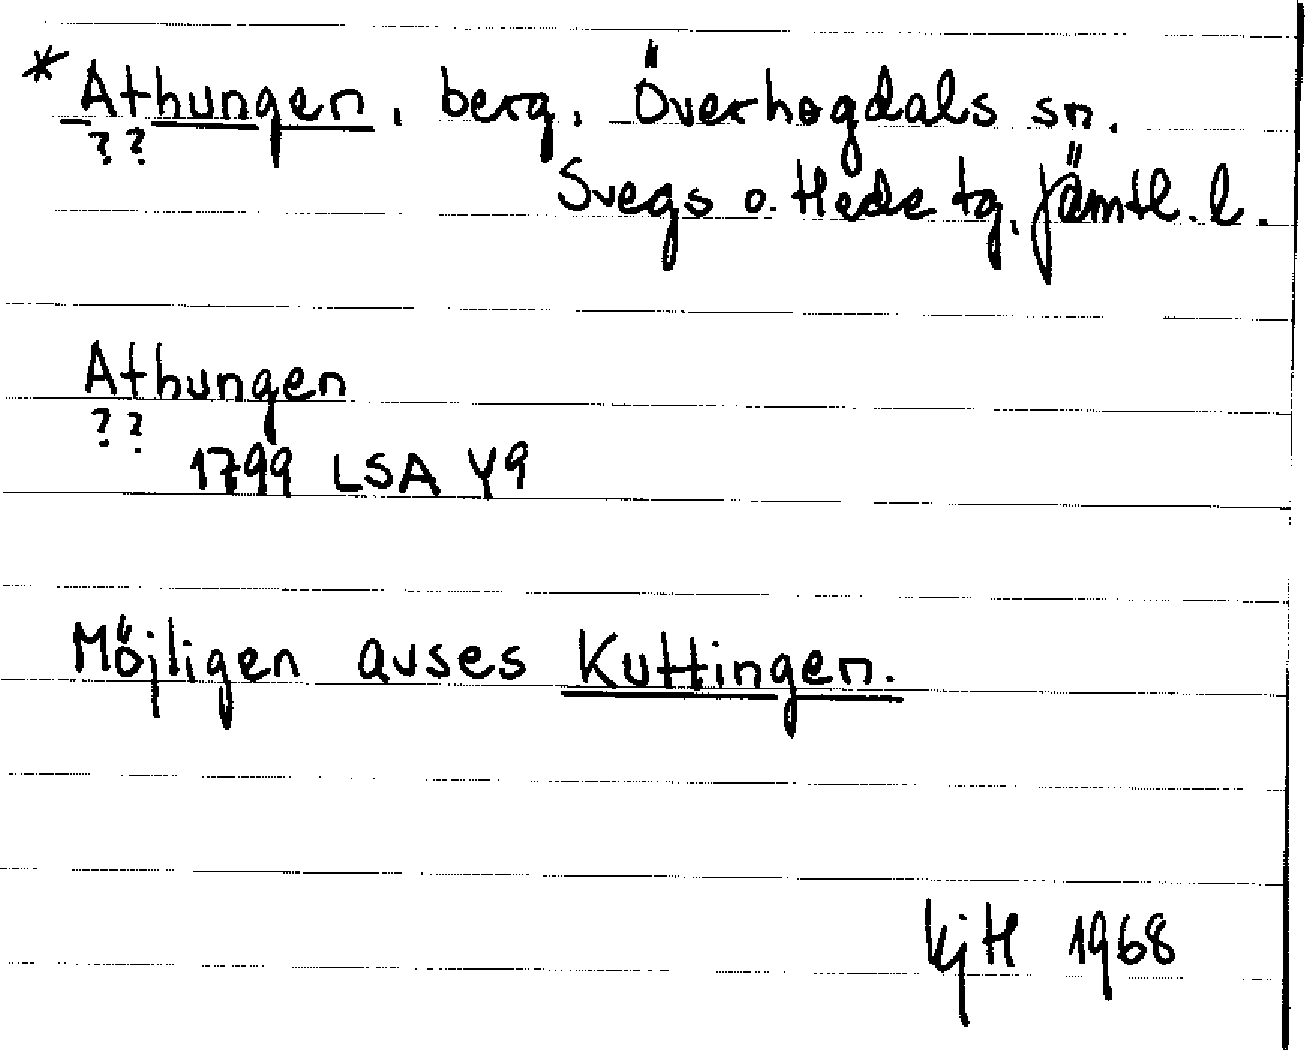 *Athungen, berg, Överhogdals sn.
? ?
Svegs o. Hede tg, Jämtl. l.
Athungen
? ?
1799 LSA Y9
Möjligen avses Kuttingen.
KjH 1968